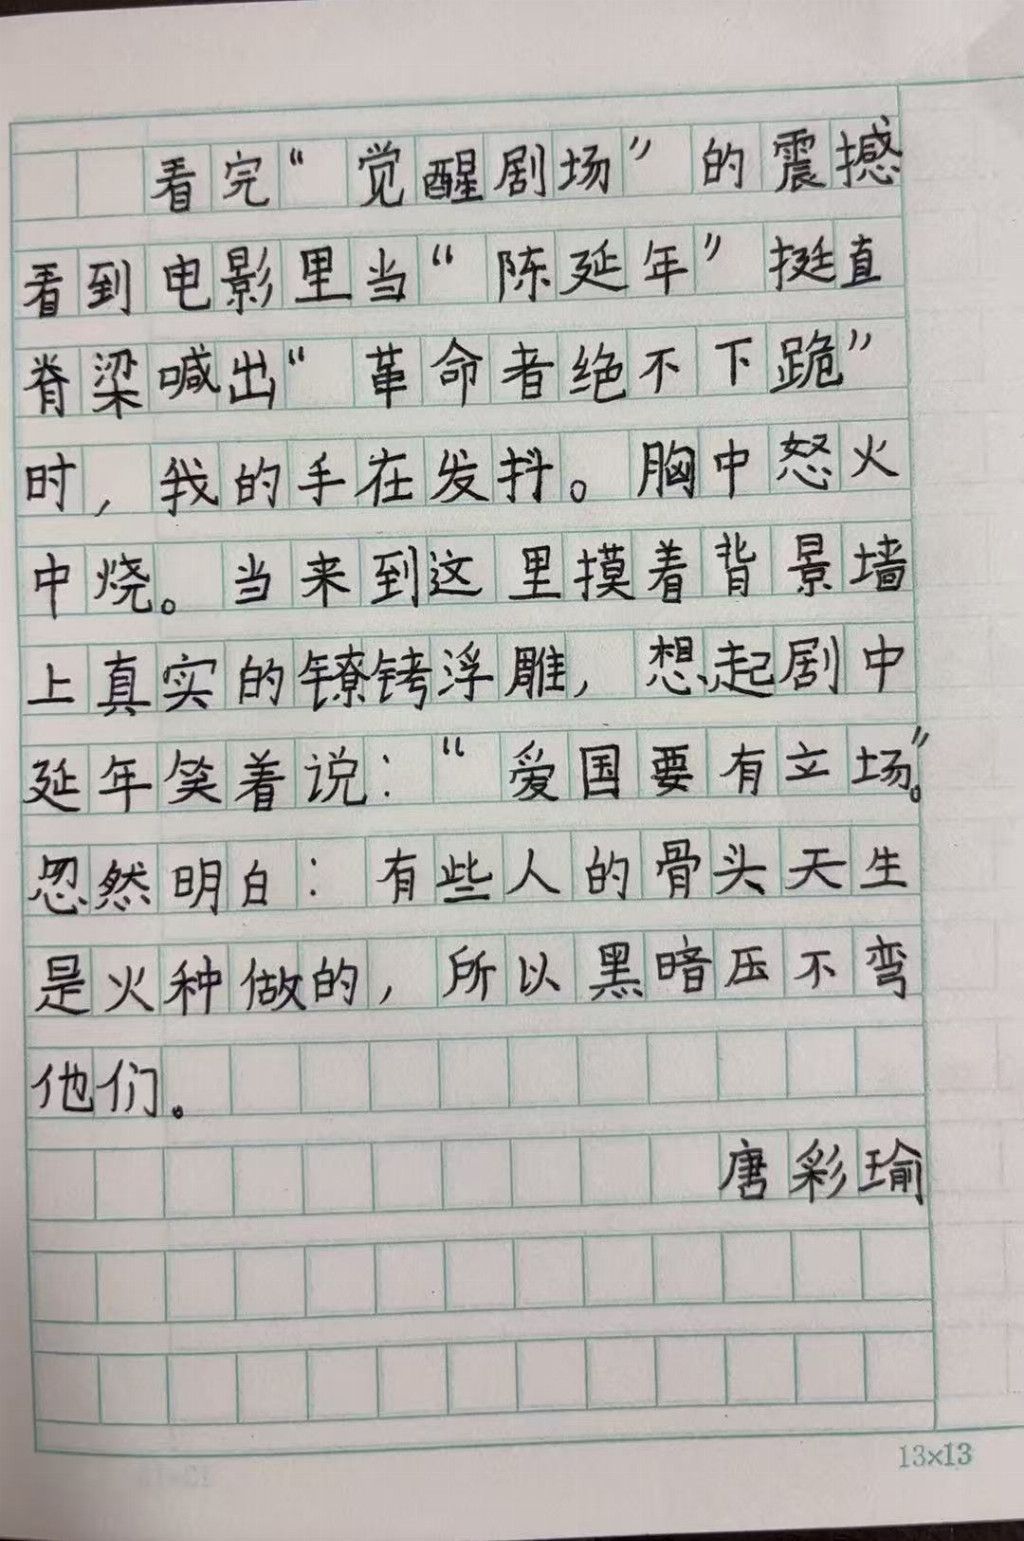 看完“觉醒剧场”的震撼
看到电影里当“陈延年”挺直
脊梁喊出“革命者绝不下跪”
时,我的手在发抖。胸中怒火
中烧。当来到这里摸着背景墙
上真实的镣铐浮雕,想起剧中
延年笑着说:“爱国要有立场。”
忽然明白:有些人的骨头天生
是火种做的,所以黑暗压不弯
他们。
唐彩瑜
13×13